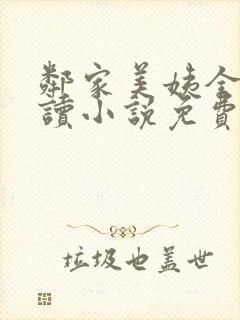 鄰家美姨全
讀小說免費
垃圾也蓋世